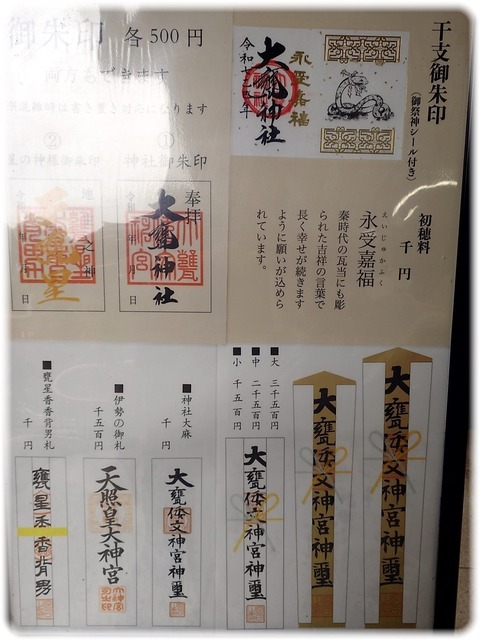 干支御朱印
(御祭神シール付き)
初穂料
千円
えいじゅかふく
永受嘉福
秦時代の瓦当にも彫
られた吉祥の言葉で
長く幸せが続きます
ように願いが込めら
れています。
永受嘉福
大甕神社
御朱印 各500円
両方もできます
混雑時は書き置き対応になります
①
神社御朱印
奉拝
大甕神社
年 月 日
②
星の神様御朱印
地
之神
年 月 日
■大 三千五百円
■中 二千五百円
■小 千五百円
大甕倭文神宮神璽
大甕倭文神宮神璽
大甕倭文神宮神璽
■神社大麻
千円
大甕倭文神宮神璽
■伊勢の御札
千五百円
天照皇大神宮
■甕星香香背男札
千円
甕星香香背男